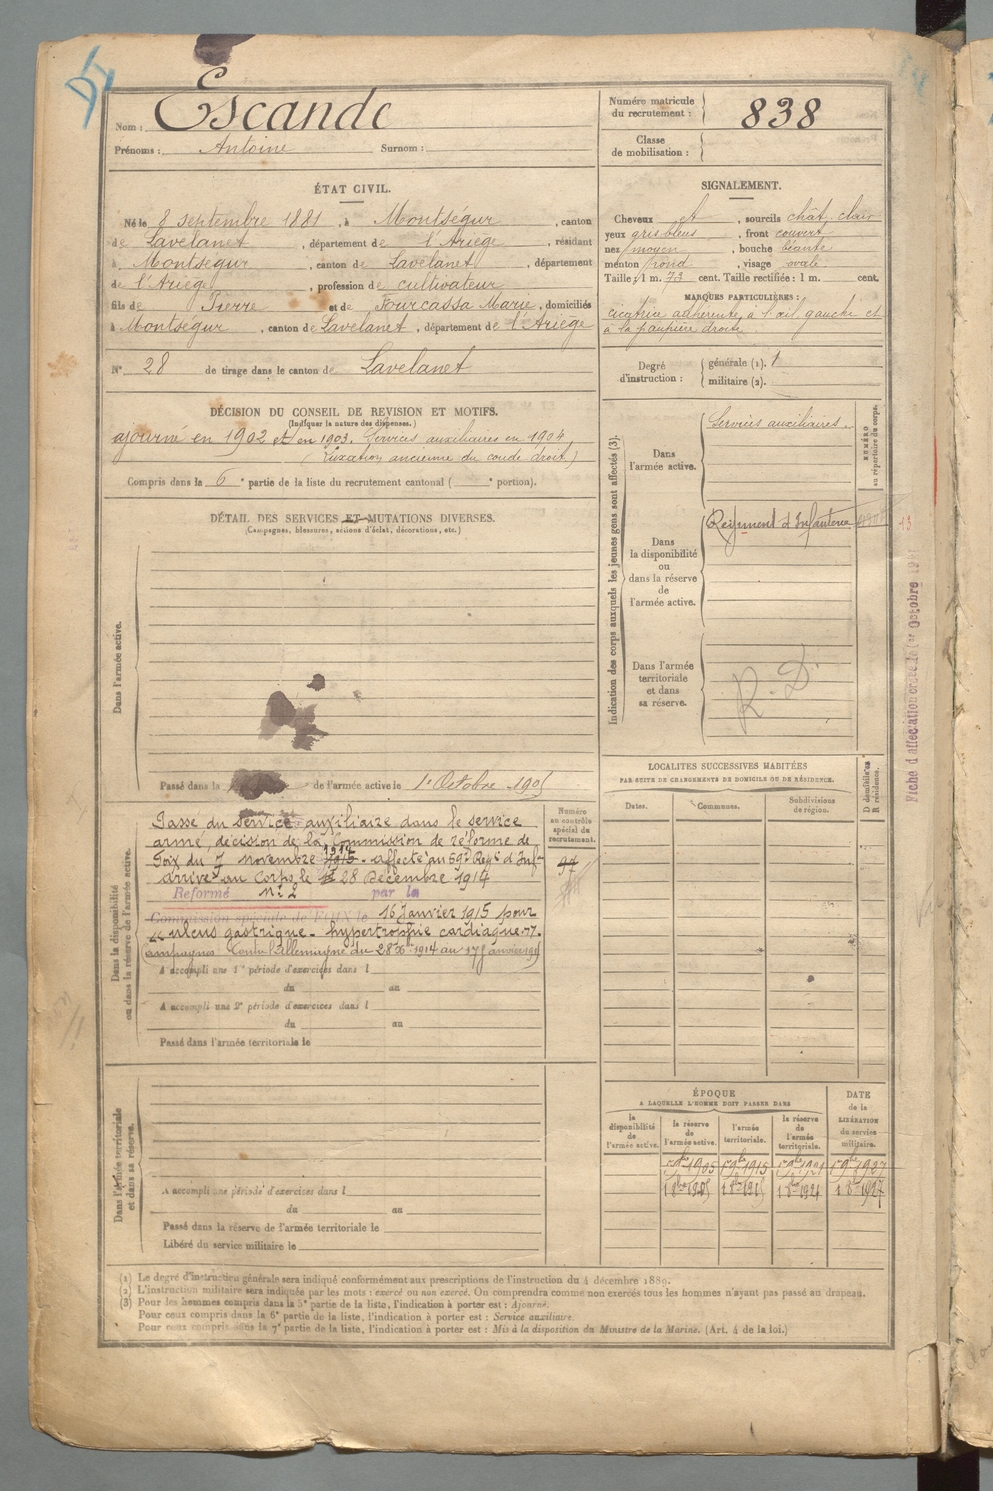 Nom : Escande
Prénoms : Antoine Surnom :
Numéro matricule du recrutement : 838
Classe de mobilisation :
ÉTAT CIVIL.
Né le 8 septembre 1881, à Montségur, canton
de Lavelanet, département de l'Ariège, résidant
à Montségur, canton de Lavelanet, département
de l'Ariège, profession de cultivateur
fils de Pierre et de Fourcassa Marie, domiciliés
à Montségur, canton de Lavelanet, département de l'Ariège
N° 28 de tirage dans le canton de Lavelanet
SIGNALEMENT.
Cheveux et, sourcils chât. clair
yeux gris bleus, front couvert
nez moyen, bouche béante
menton rond, visage ovale
Taille : 1 m. 73 cent. Taille rectifiée : 1 m. cent.
MARQUES PARTICULIÈRES :
cicatrice adhérente à l'œil gauche et
à la paupière droite
Degré d'instruction :
générale (1). 1
militaire (2).
DÉCISION DU CONSEIL DE REVISION ET MOTIFS.
(Indiquer la nature des dispenses.)
ajourné en 1902 et en 1903. Services auxiliaires en 1904
(Luxation ancienne du coude droit)
Compris dans la 6e partie de la liste du recrutement cantonal ( e portion).
DÉTAIL DES SERVICES ET MUTATIONS DIVERSES.
(Campagnes, blessures, actions d'éclat, décorations, etc.)
Dans l'armée active.
Passé dans la de l'armée active le 1er Octobre 1905
Indication des corps auxquels les jeunes gens sont affectés (3).
NUMÉRO au répertoire du corps.
Dans l'armée active.
Services auxiliaires.
Dans la disponibilité ou dans la réserve de l'armée active.
Régiment d'Infanterie
Dans l'armée territoriale et dans sa réserve.
R. D.
Fiche d'affectation créée le 1er Octobre
Dans la disponibilité ou dans la réserve de l'armée active.
Numéro au contrôle spécial du recrutement.
Passé du service auxiliaire dans le service
armé, décision de la Commission de réforme de
Foix du 7 novembre 1914. affecté au 59e Régt d'Infie
arrivé au Corps le 28 Décembre 1914
Réformé N° 2 par la
Commission spéciale de FOIX le 16 Janvier 1915 pour
ulcus gastrique - hypertrophie cardiaque.
Campagnes Contre l'Allemagne du 28 Xbre 1914 au 17 Janvier 1915
A accompli une 1re période d'exercices dans l
du au
A accompli une 2e période d'exercices dans l
du au
Passé dans l'armée territoriale le
Dans l'armée territoriale et dans sa réserve.
A accompli une période d'exercices dans l
du au
Passé dans la réserve de l'armée territoriale le
Libéré du service militaire le
LOCALITÉS SUCCESSIVES HABITÉES
PAR SUITE DE CHANGEMENTS DE DOMICILE OU DE RÉSIDENCE.
Dates. Communes. Subdivisions de région. D domicile ou R résidence.
ÉPOQUE
A LAQUELLE L'HOMME DOIT PASSER DANS
DATE de la LIBÉRATION du service militaire.
la disponibilité de l'armée active.
la réserve de l'armée active.
l'armée territoriale.
la réserve de l'armée territoriale.
1 9bre 1905 1 9bre 1915 1 9bre 1921 1 9bre 1927
1 8bre 1905 1 8bre 1915 1 8bre 1921 1 8bre 1927
(1) Le degré d'instruction générale sera indiqué conformément aux prescriptions de l'instruction du 4 décembre 1889.
(2) L'instruction militaire sera indiquée par les mots : exercé ou non exercé. On comprendra comme non exercés tous les hommes n'ayant pas passé au drapeau.
(3) Pour les hommes compris dans la 5e partie de la liste, l'indication à porter est : Ajourné.
Pour ceux compris dans la 6e partie de la liste, l'indication à porter est : Service auxiliaire.
Pour ceux compris dans la 7e partie de la liste, l'indication à porter est : Mis à la disposition du Ministre de la Marine. (Art. 4 de la loi.)